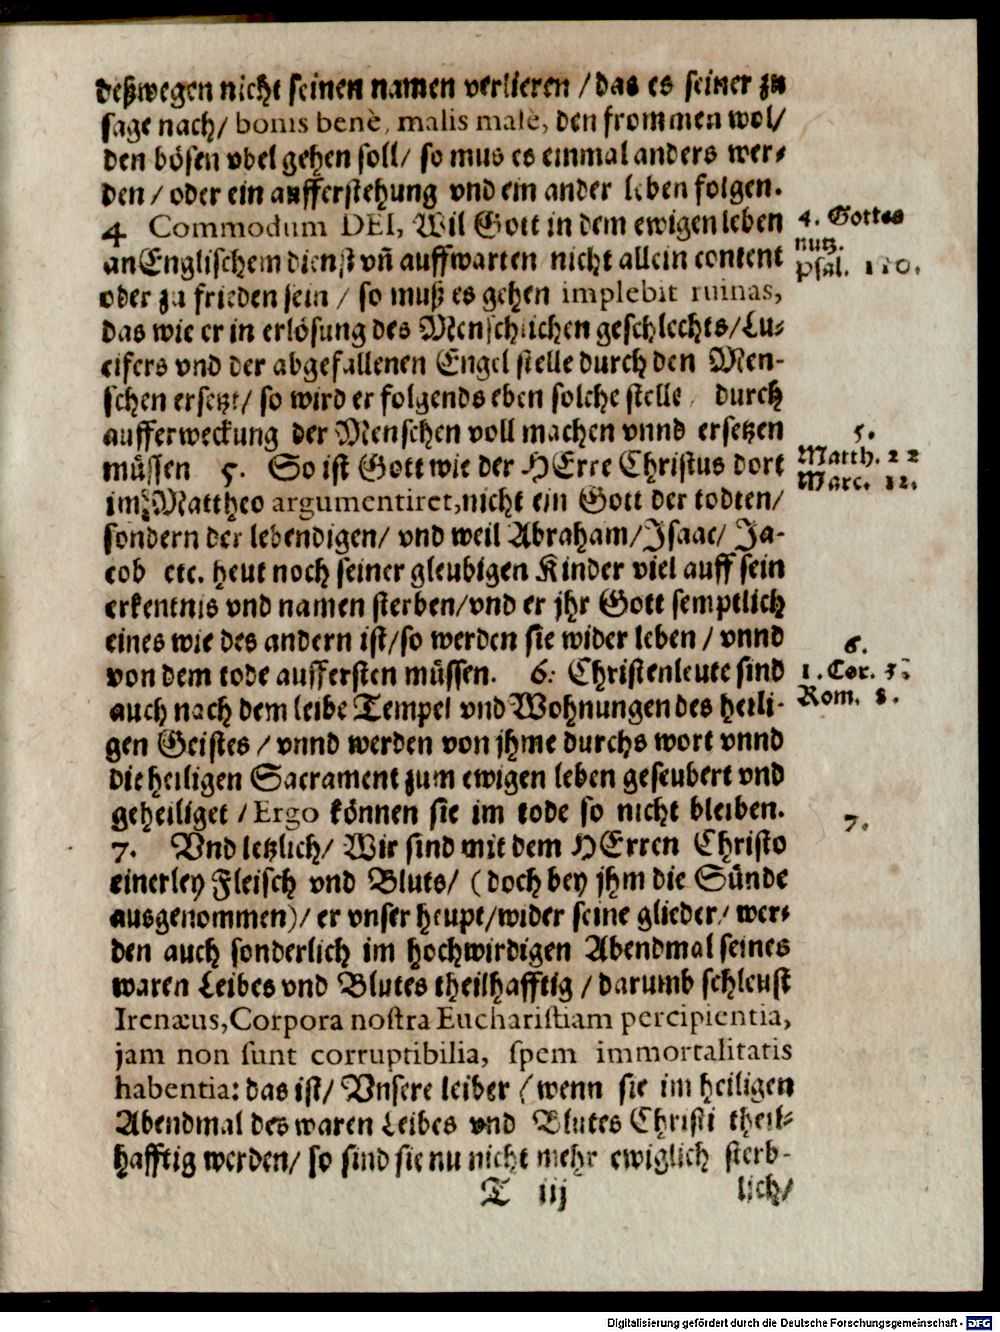 deßwegen nicht seinen namen verlieren / das es seiner zu
sage nach / bonis benè, malis malè, den frommen wol /
den bösen vbel gehen soll / so mus es einmal anders wer-
den / oder ein aufferstehung vnd ein ander leben folgen.
4 Commodum DEI, Wil Gott in dem ewigen leben
an Englischem dienst vñ auffwarten nicht allein content
oder zu frieden sein / so muß es gehen implebit ruinas,
das wie er in erlösung des Menschlichen geschlechts / Lu-
cifers vnd der abgefallenen Engel stelle durch den Men-
schen ersetzt / so wird er folgends eben solche stelle durch
aufferweckung der Menschen voll machen vnnd ersetzen
müssen 5. So ist Gott wie der HErre Christus dort
im Mattheo argumentiret, nicht ein Gott der todten /
sondern der lebendigen / vnd weil Abraham / Isaac / Ja-
cob etc. heut noch seiner gleubigen Kinder viel auff sein
erkentnis vnd namen sterben / vnd er jhr Gott semptlich
eines wie des andern ist / so werden sie wider leben / vnnd
von dem tode auffersten müssen. 6. Christenleute sind
auch nach dem leibe Tempel vnd Wohnungen des heili-
gen Geistes / vnnd werden von jhme durchs wort vnnd
die heiligen Sacrament zum ewigen leben geseubert vnd
geheiliget / Ergo können sie im tode so nicht bleiben.
7. Vnd letzlich / Wir sind mit dem HErren Christo
einerley Fleisch vnd Bluts / (doch bey jhm die Sünde
ausgenommen) / er vnser heupt / wider seine glieder / wer-
den auch sonderlich im hochwirdigen Abendmal seines
waren Leibes vnd Blutes theilhafftig / darumb schleust
Irenæus, Corpora nostra Eucharistiam percipientia,
jam non sunt corruptibilia, spem immortalitatis
habentia: das ist / Vnsere leiber (wenn sie im heiligen
Abendmal des waren Leibes vnd Blutes Christi theil-
hafftig werden / so sind sie nu nicht mehr ewiglich sterb-
T iij lich /
4. Gottes
nutz.
Psal. 110.
5.
Matth. 22
Marc. 12.
6.
1. Cor. 3.
Rom. 8.
7.
Digitalisierung gefördert durch die Deutsche Forschungsgemeinschaft - DFG